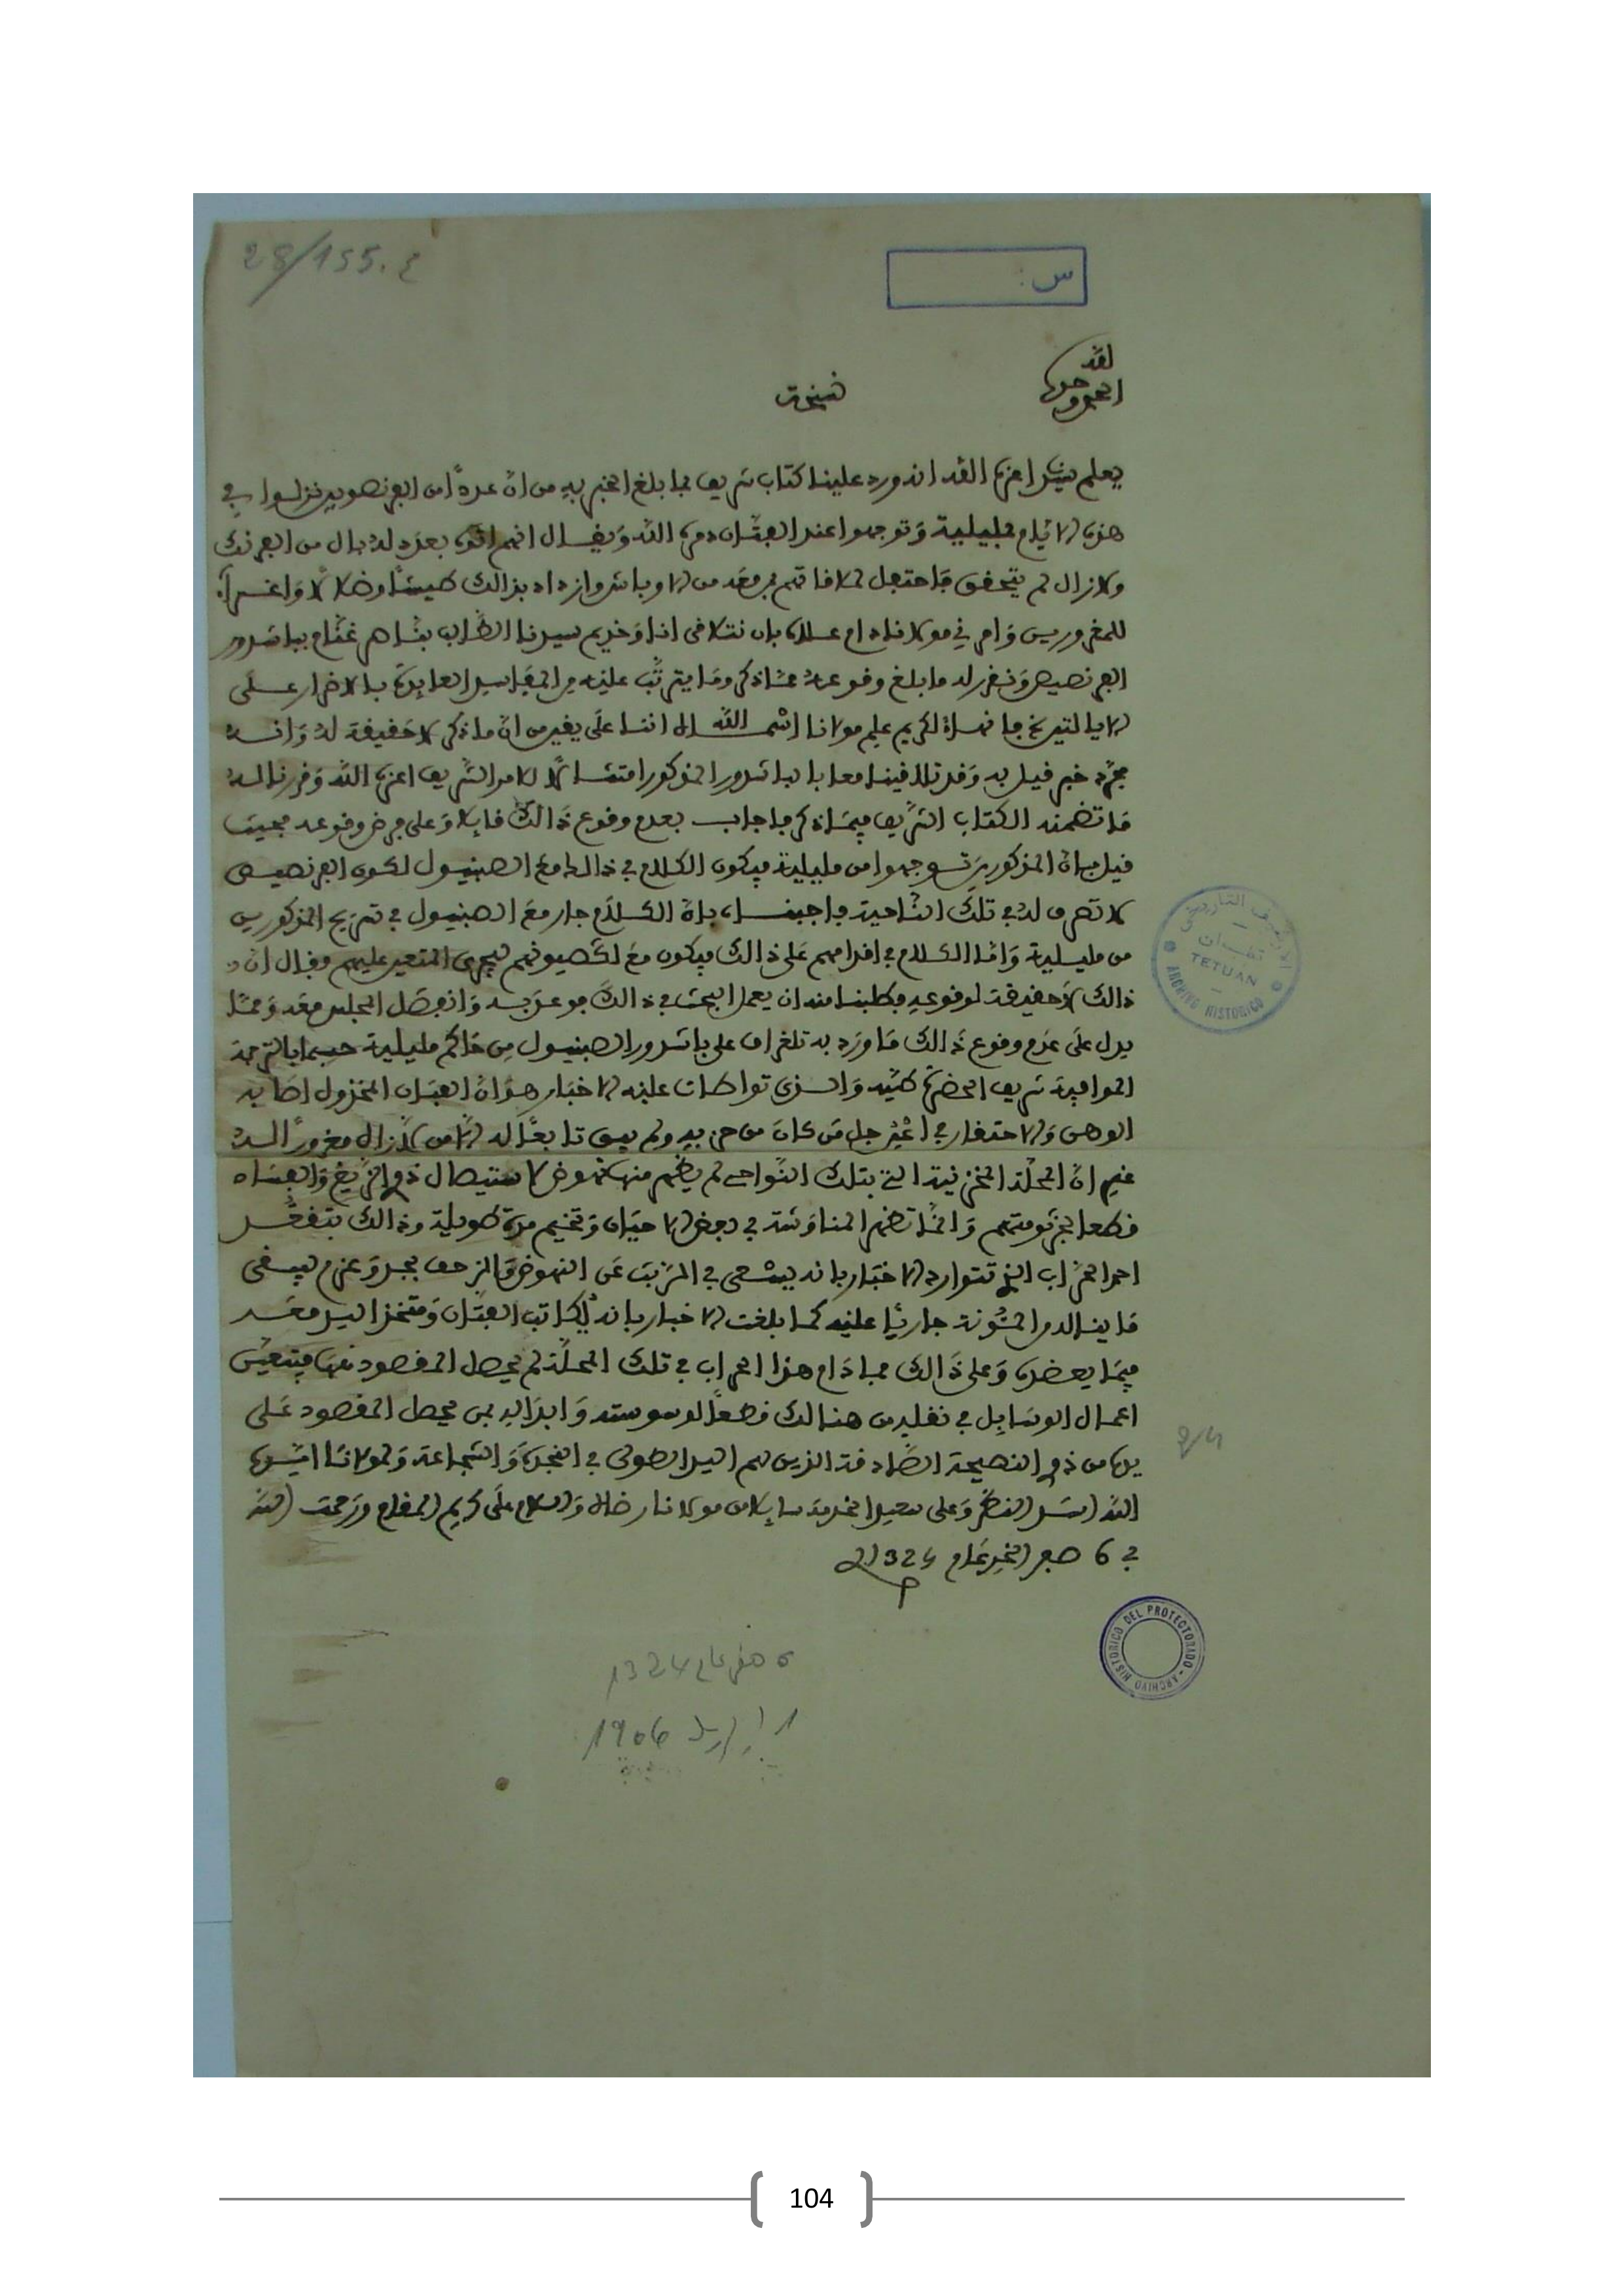 28/155. ع
س :
الحمد لله وحده
نسخة
يعلم سيدنا اعزه الله انه ورد علينا كتاب شريف بما بلغ الخبر به من ان عددا من الفرنصويين نزلوا في
هذه الايام بمليلية وتوجهوا عند الفتان دمره الله ويقال انهم اتوه بعدد له بال من الفرنك
ولازال لم يتحقق فاحتفل لملاقاتهم بمن معه من الاوباش وازداد بذالك طيشا وضلالا واغراءً
للمغرورين وامرني مولانا دام علاه بان نتلاقى انا وخديم سيدنا الطالب بناصر غنام بباشدور
الفرنصيص ونقرر له ما بلغ وقوعه مما ذكر وما يترتب عليه من المفاسد العائدة بالاضرار على
الايالتين فانهاه لكريم علم مولانا اسماه الله اننا على يقين من ان ما ذكر لا حقيقة له وانه
مجرد خبر قيل به وقد تلاقينا معا بالباشدور المذكور امتثالا للامر الشريف اعزه الله وقررنا له
ما تضمنه الكتاب الشريف فيما ذكر فاجاب بعدم وقوع ذالك قائلا وعلى فرض وقوعه فحيث
قيل بان المذكورين توجهوا من مليلية فيكون الكلام في ذالك مع الصبنيول لكون الفرنصيص
لا تصرف له في تلك الناحية فاجبناه بان الكلام جار مع الصبنيول في تسريح المذكورين
من مليلية واما الكلام في اقدامهم على ذالك فيكون مع لكصيونهم ليجري المتعين عليهم فقال ان
ذالك لا حقيقة لوقوعه فطلبنا منه ان يعمل البحث في ذالك فوعد به وانفصل المجلس معه ومما
يدل على عدم وقوع ذالك ما ورد به تلغراف على باشدور الصبنيول من حاكم مليلية حسبما بالترجمة
الموافية شريف الحضرة طيه والذي تواطات عليه الاخبار هو ان الفتان المخذول اصابه
الوهن والاحتقار في اعين جل من كان من حزبه ولم يبق تابعا له الا من لازال مغرورا به
غير ان المحلة المخزنية التي بتلك النواحي لم يظهر منها نهوض لاستيصال ذوي الزيغ والفساد
قطعا لجرثومتهم وانما تظهر المناوشة في بعض الاحيان وتخيم مدة طويلة وذالك بتقعد
احد الحراب الذي تتوارد الاخبار بانه يسعى في التربث عن النهوض والزحف بجد وعزم ليبقى
ما ينال من المئونة جاريا عليه كما بلغت الاخبار بانه يكاتب الفتان ومتخذ اليد معه
فيما يعضده وعلى ذالك فما دام هذا الحراب في تلك المحلة لم يحصل المقصود منها فيتعين
اعمال الوسائل في نقله من هنالك قطعا لوسوسته وابداله بمن يحصل المقصود على
يده من ذوي النصيحة الصادقة الذين لهم اليد الطولى في النجدة والشجاعة ولمولانا ايده
الله اسد النظر وعلى سعيد الخدمة سائلا من مولانا رضاه والسلام على كريم المقام ورحمت الله
في 6 صفر الخير عام 1324
الأرشيف التاريخي
تطوان
TETUAN
ARCHIVO HISTORICO
ARCHIVO HISTORICO DEL PROTECTORADO
6 صفر عام 1324
1 ابريل 1906
104